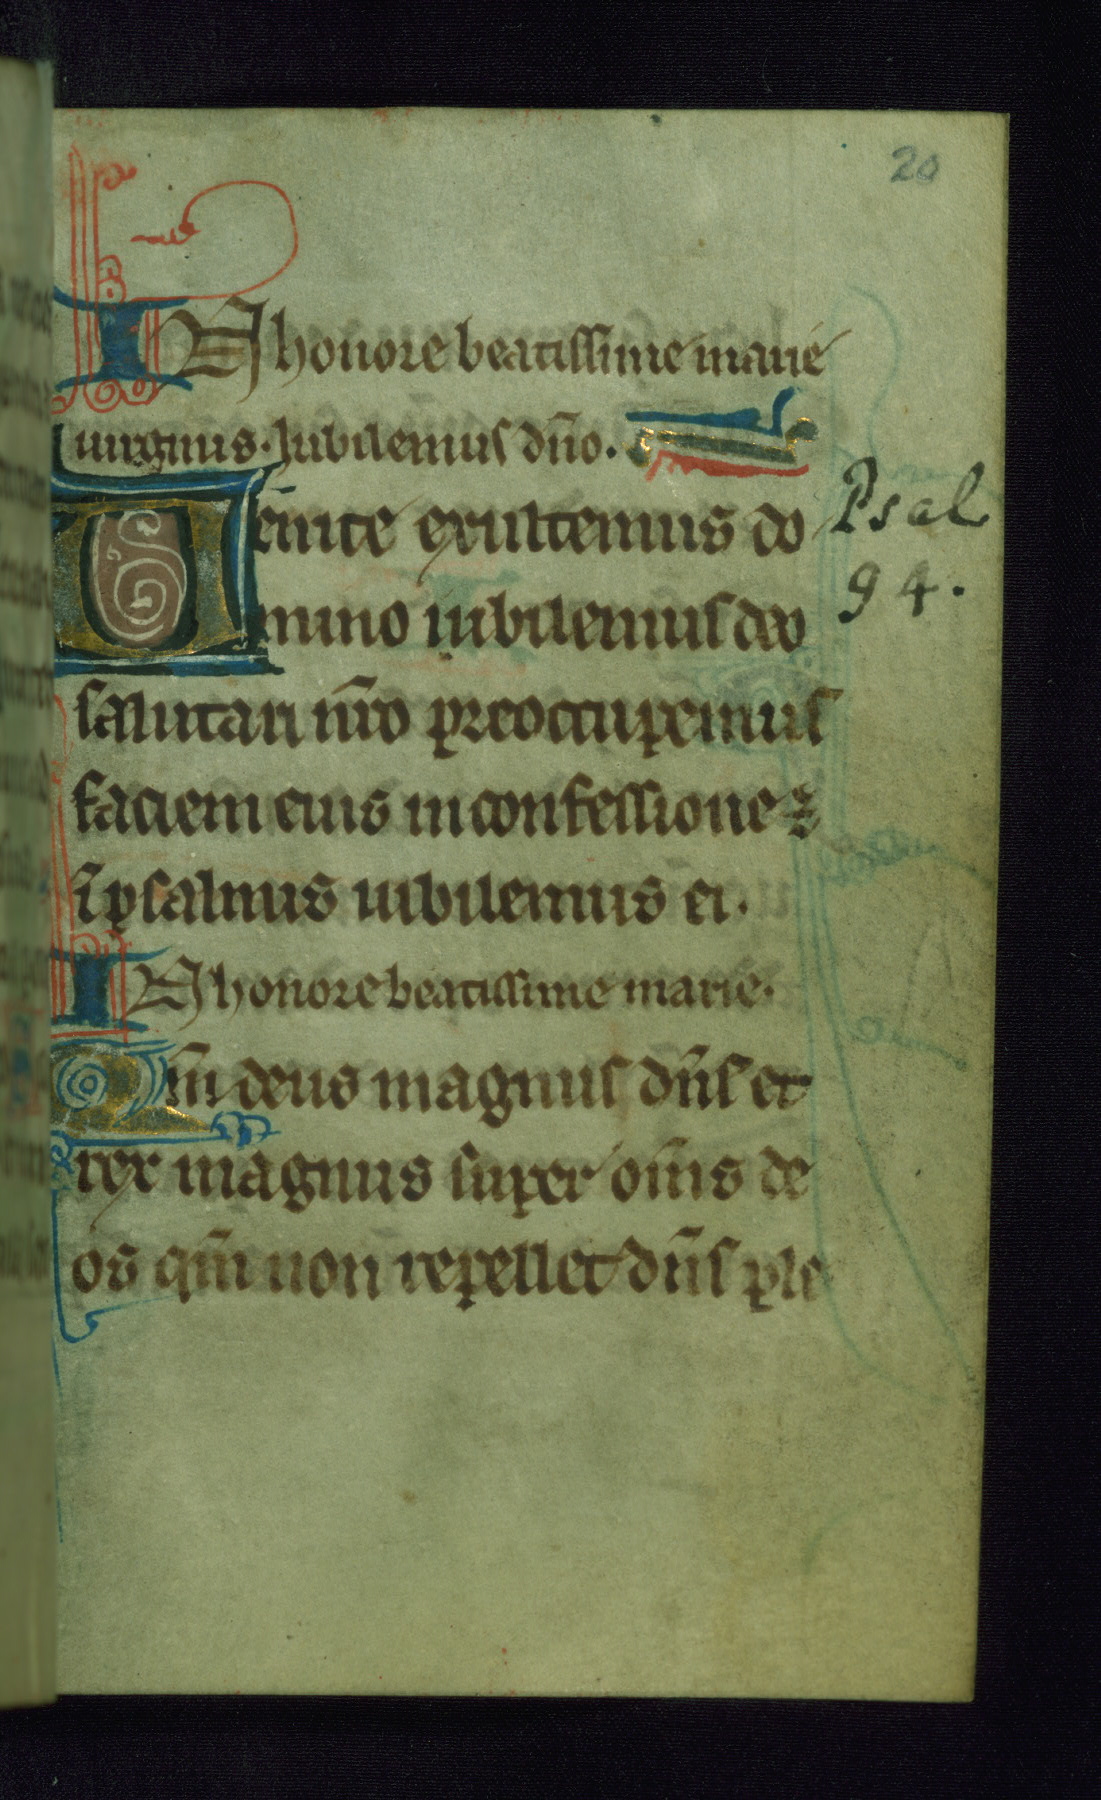 20
IN honore beatissime marie
uirginis. Iubilemus dn̄o.
Uēnite exultemus do
mino iubilemus deo
Psal
94.
salutari nr̄o preoccupemus
faciem eius in confessione ⁊
ī psalmis iubilemus ei.
IN honore beatissime marie.
Qm̄ deus magnus dn̄s et
rex magnus super om̄s de
os qm̄ non repellet dn̄s ple